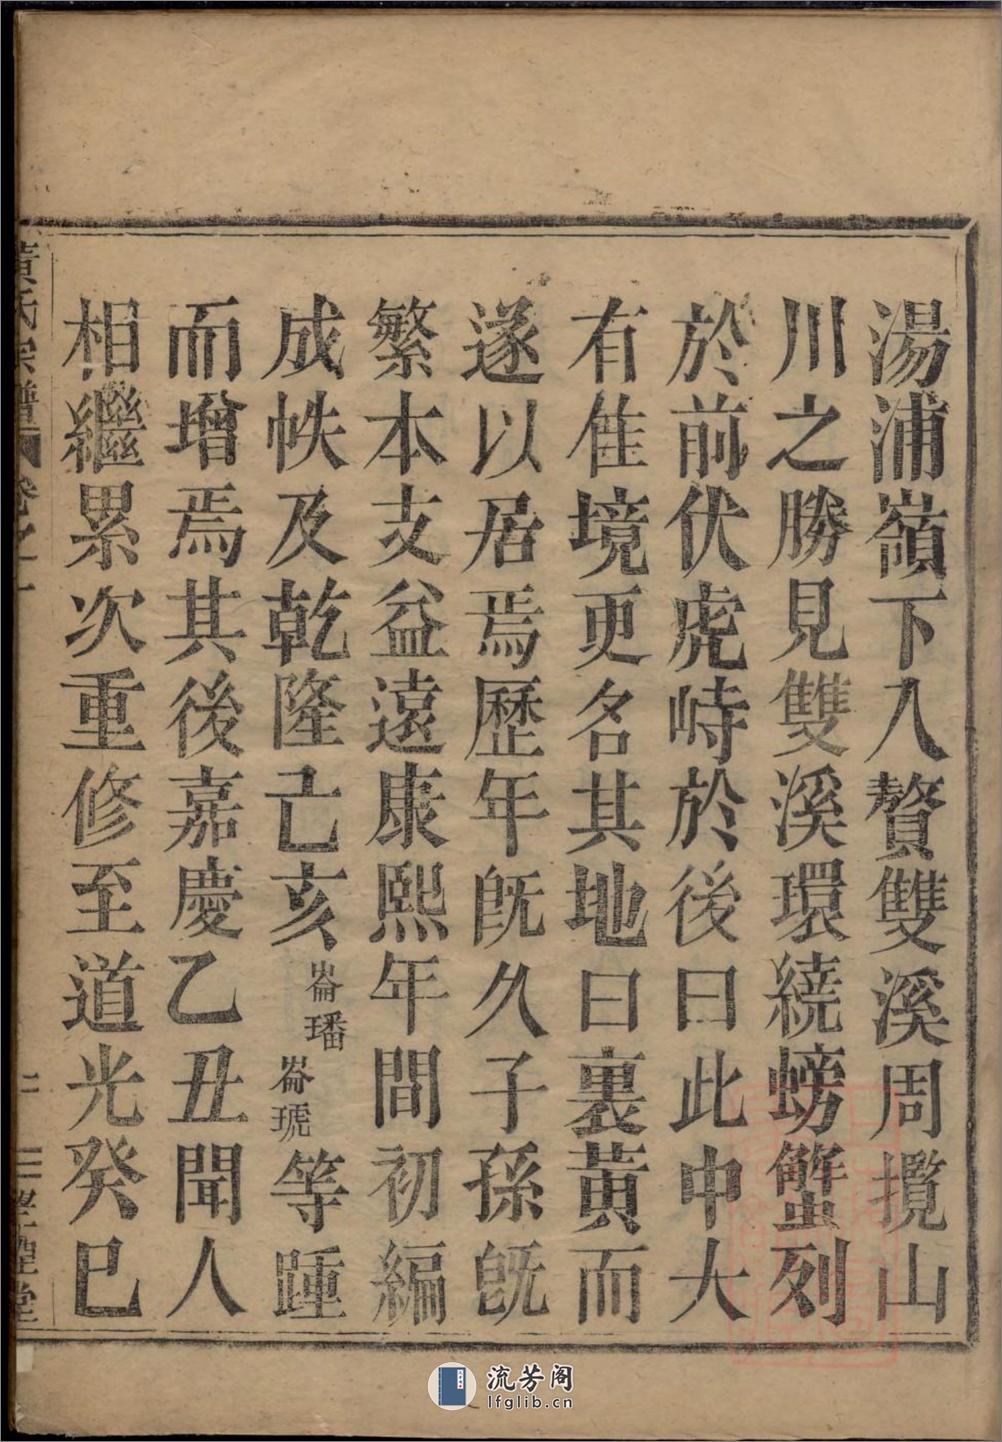 湯浦嶺下入贅雙溪周攬山
川之勝見雙溪環繞螃蟹列
於前伏虎峙於後曰此中大
有佳境更名其地曰裏黄而
遂以居焉歷年旣久子孫旣
繁本支益遠康熙年間初編
成帙及乾隆己亥崙璠崙琥等踵
而增焉其後嘉慶乙丑聞人
相繼累次重修至道光癸巳
黃氏宗譜 卷之一
流芳阁
lfglib.cn